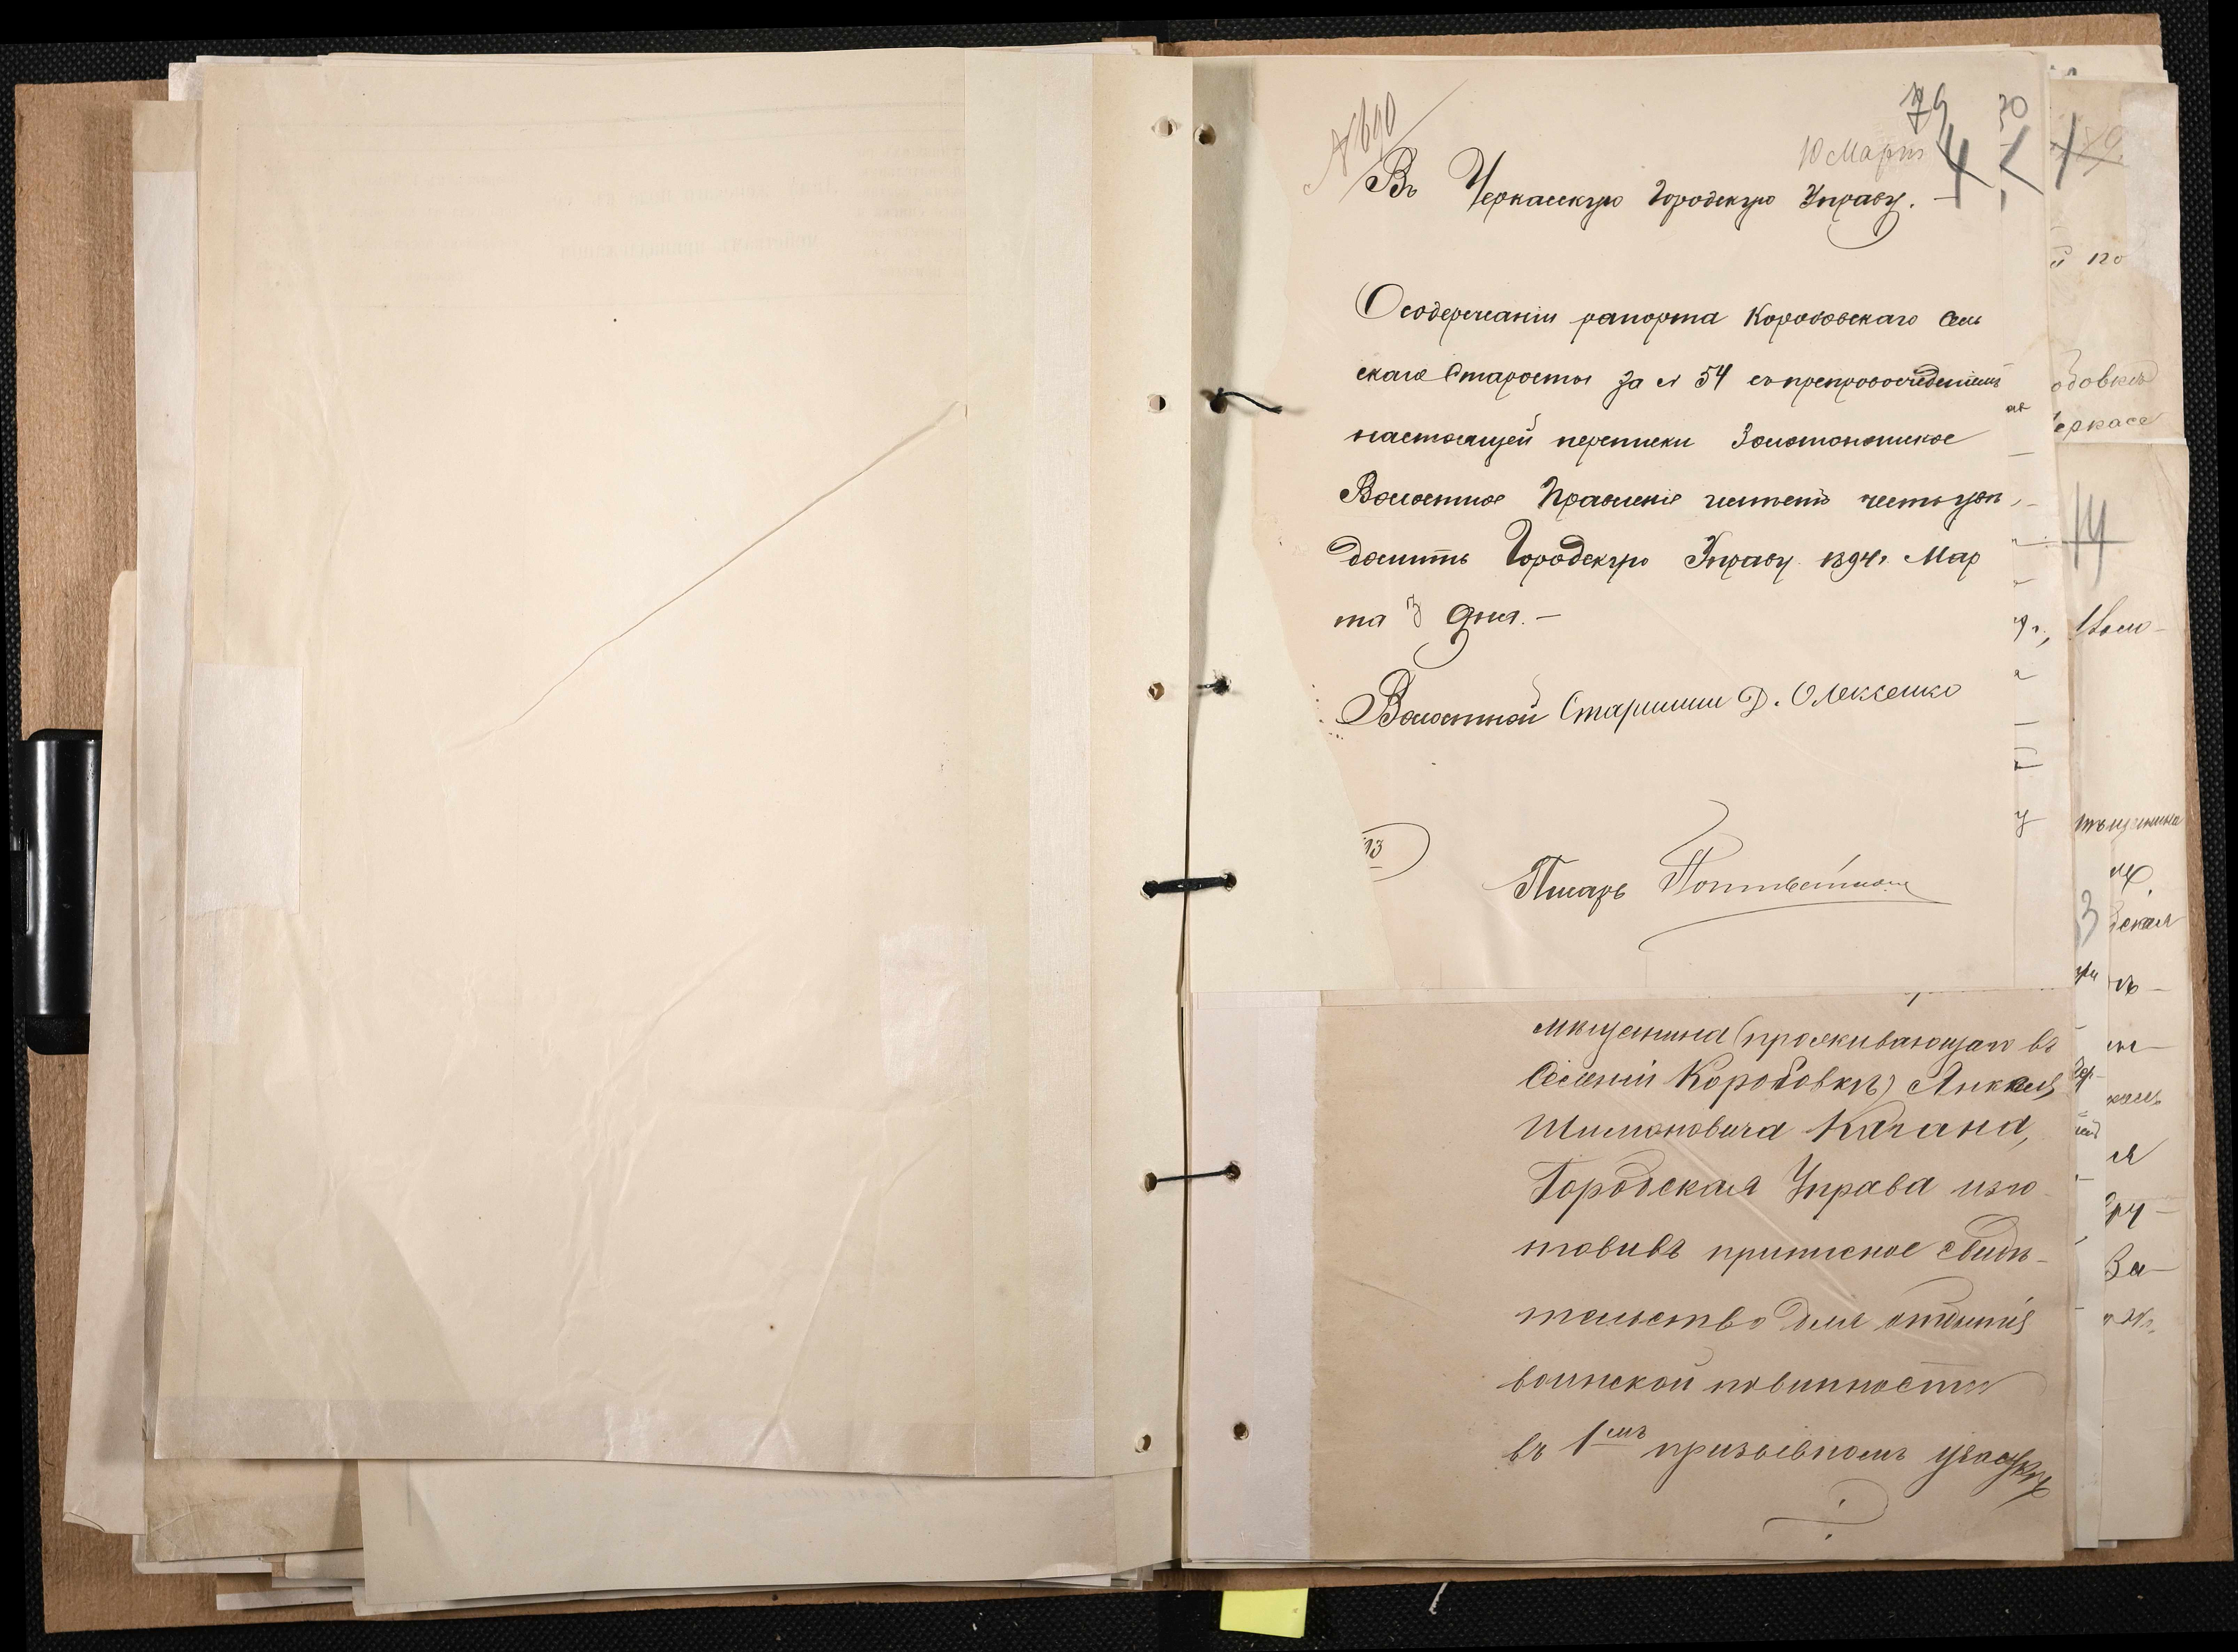 № 690
79 30
10 Март
Въ Черкасскую Городскую Управу. —
О содержаніи рапорта Коробовскаго Сель
скаго Старосты за № 54 съ препровожденіемъ
настоящей переписки Золотоношское
Волостное Правленіе имѣетъ честь увѣ
домить Городскую Управу. 1894 г. Мар
та 3 дня. —
Волостной Старшина Д. Олексенко
13
Писарь
мѣщанина (проживающаго въ
Селеніи Коробовкѣ) Янкеля
Шимоновича Кагана,
Городская Управа изго
товивъ приписное свидѣ-
тельство для отбытія
воинской повинности
въ 1мъ призывномъ участкѣ
й по
одовкѣ
Черкасс
14
мѣщанина